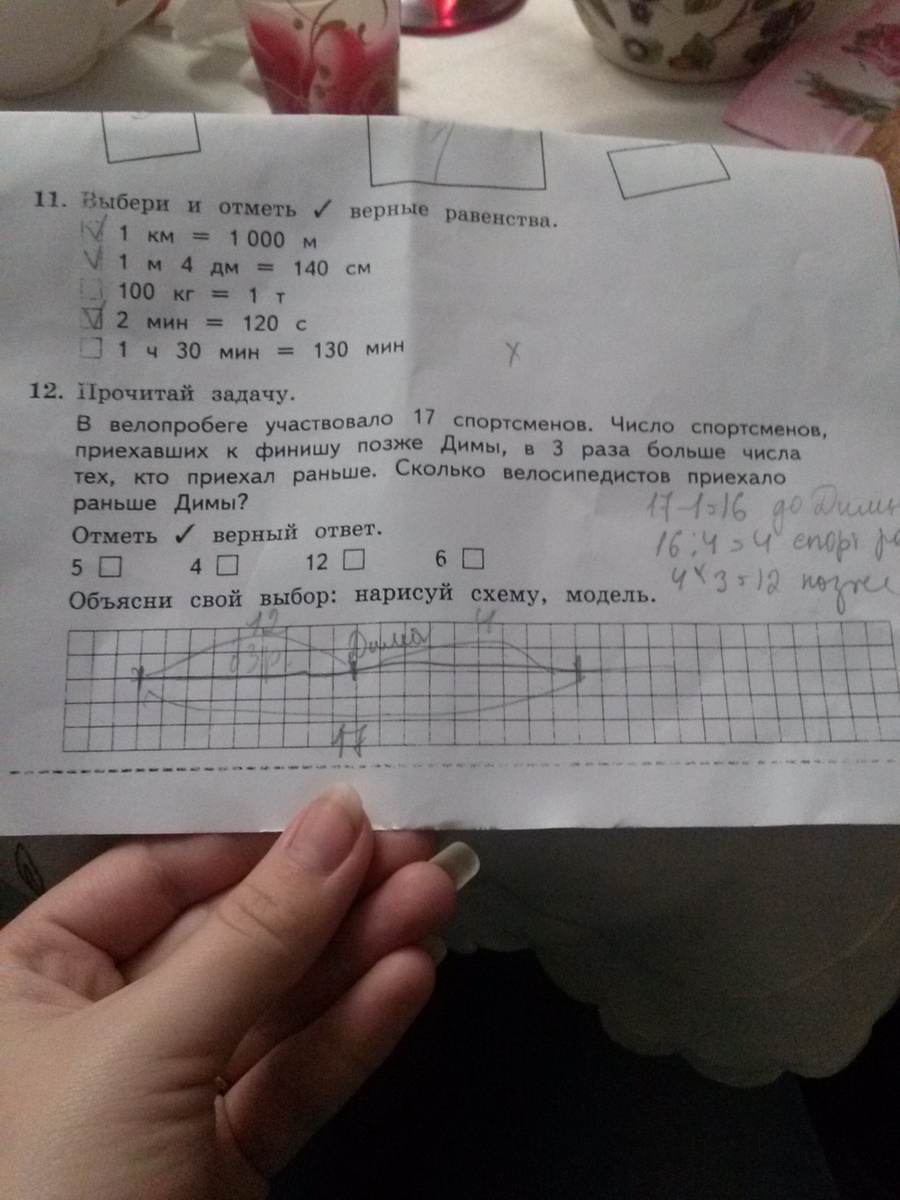 11. Выбери и отметь ✓ верные равенства.
✓ 1 км = 1 000 м
✓ 1 м 4 дм = 140 см
☐ 100 кг = 1 т
✓ 2 мин = 120 с
☐ 1 ч 30 мин = 130 мин
12. Прочитай задачу.
В велопробеге участвовало 17 спортсменов. Число спортсменов,
приехавших к финишу позже Димы, в 3 раза больше числа
тех, кто приехал раньше. Сколько велосипедистов приехало
раньше Димы?
17-1=16 до Димы
Отметь ✓ верный ответ.
16:4=4 спорт
5 ☐ 4 ☐ 12 ☐ 6 ☐
4х3=12 позже
Объясни свой выбор: нарисуй схему, модель.
12 Дима 4
17